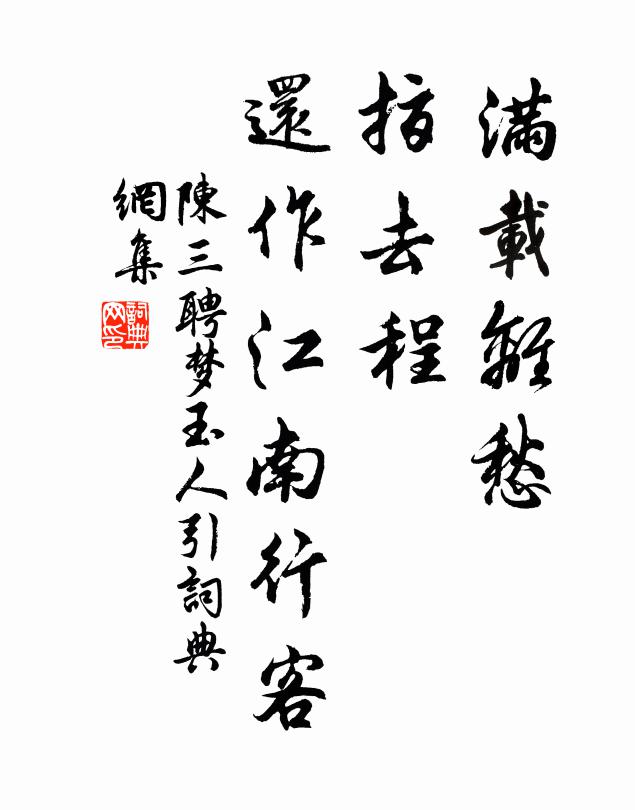 滿載離愁
指去程
還作江南行客
陳三聘梦玉人引詞典
網集
詞典
网印